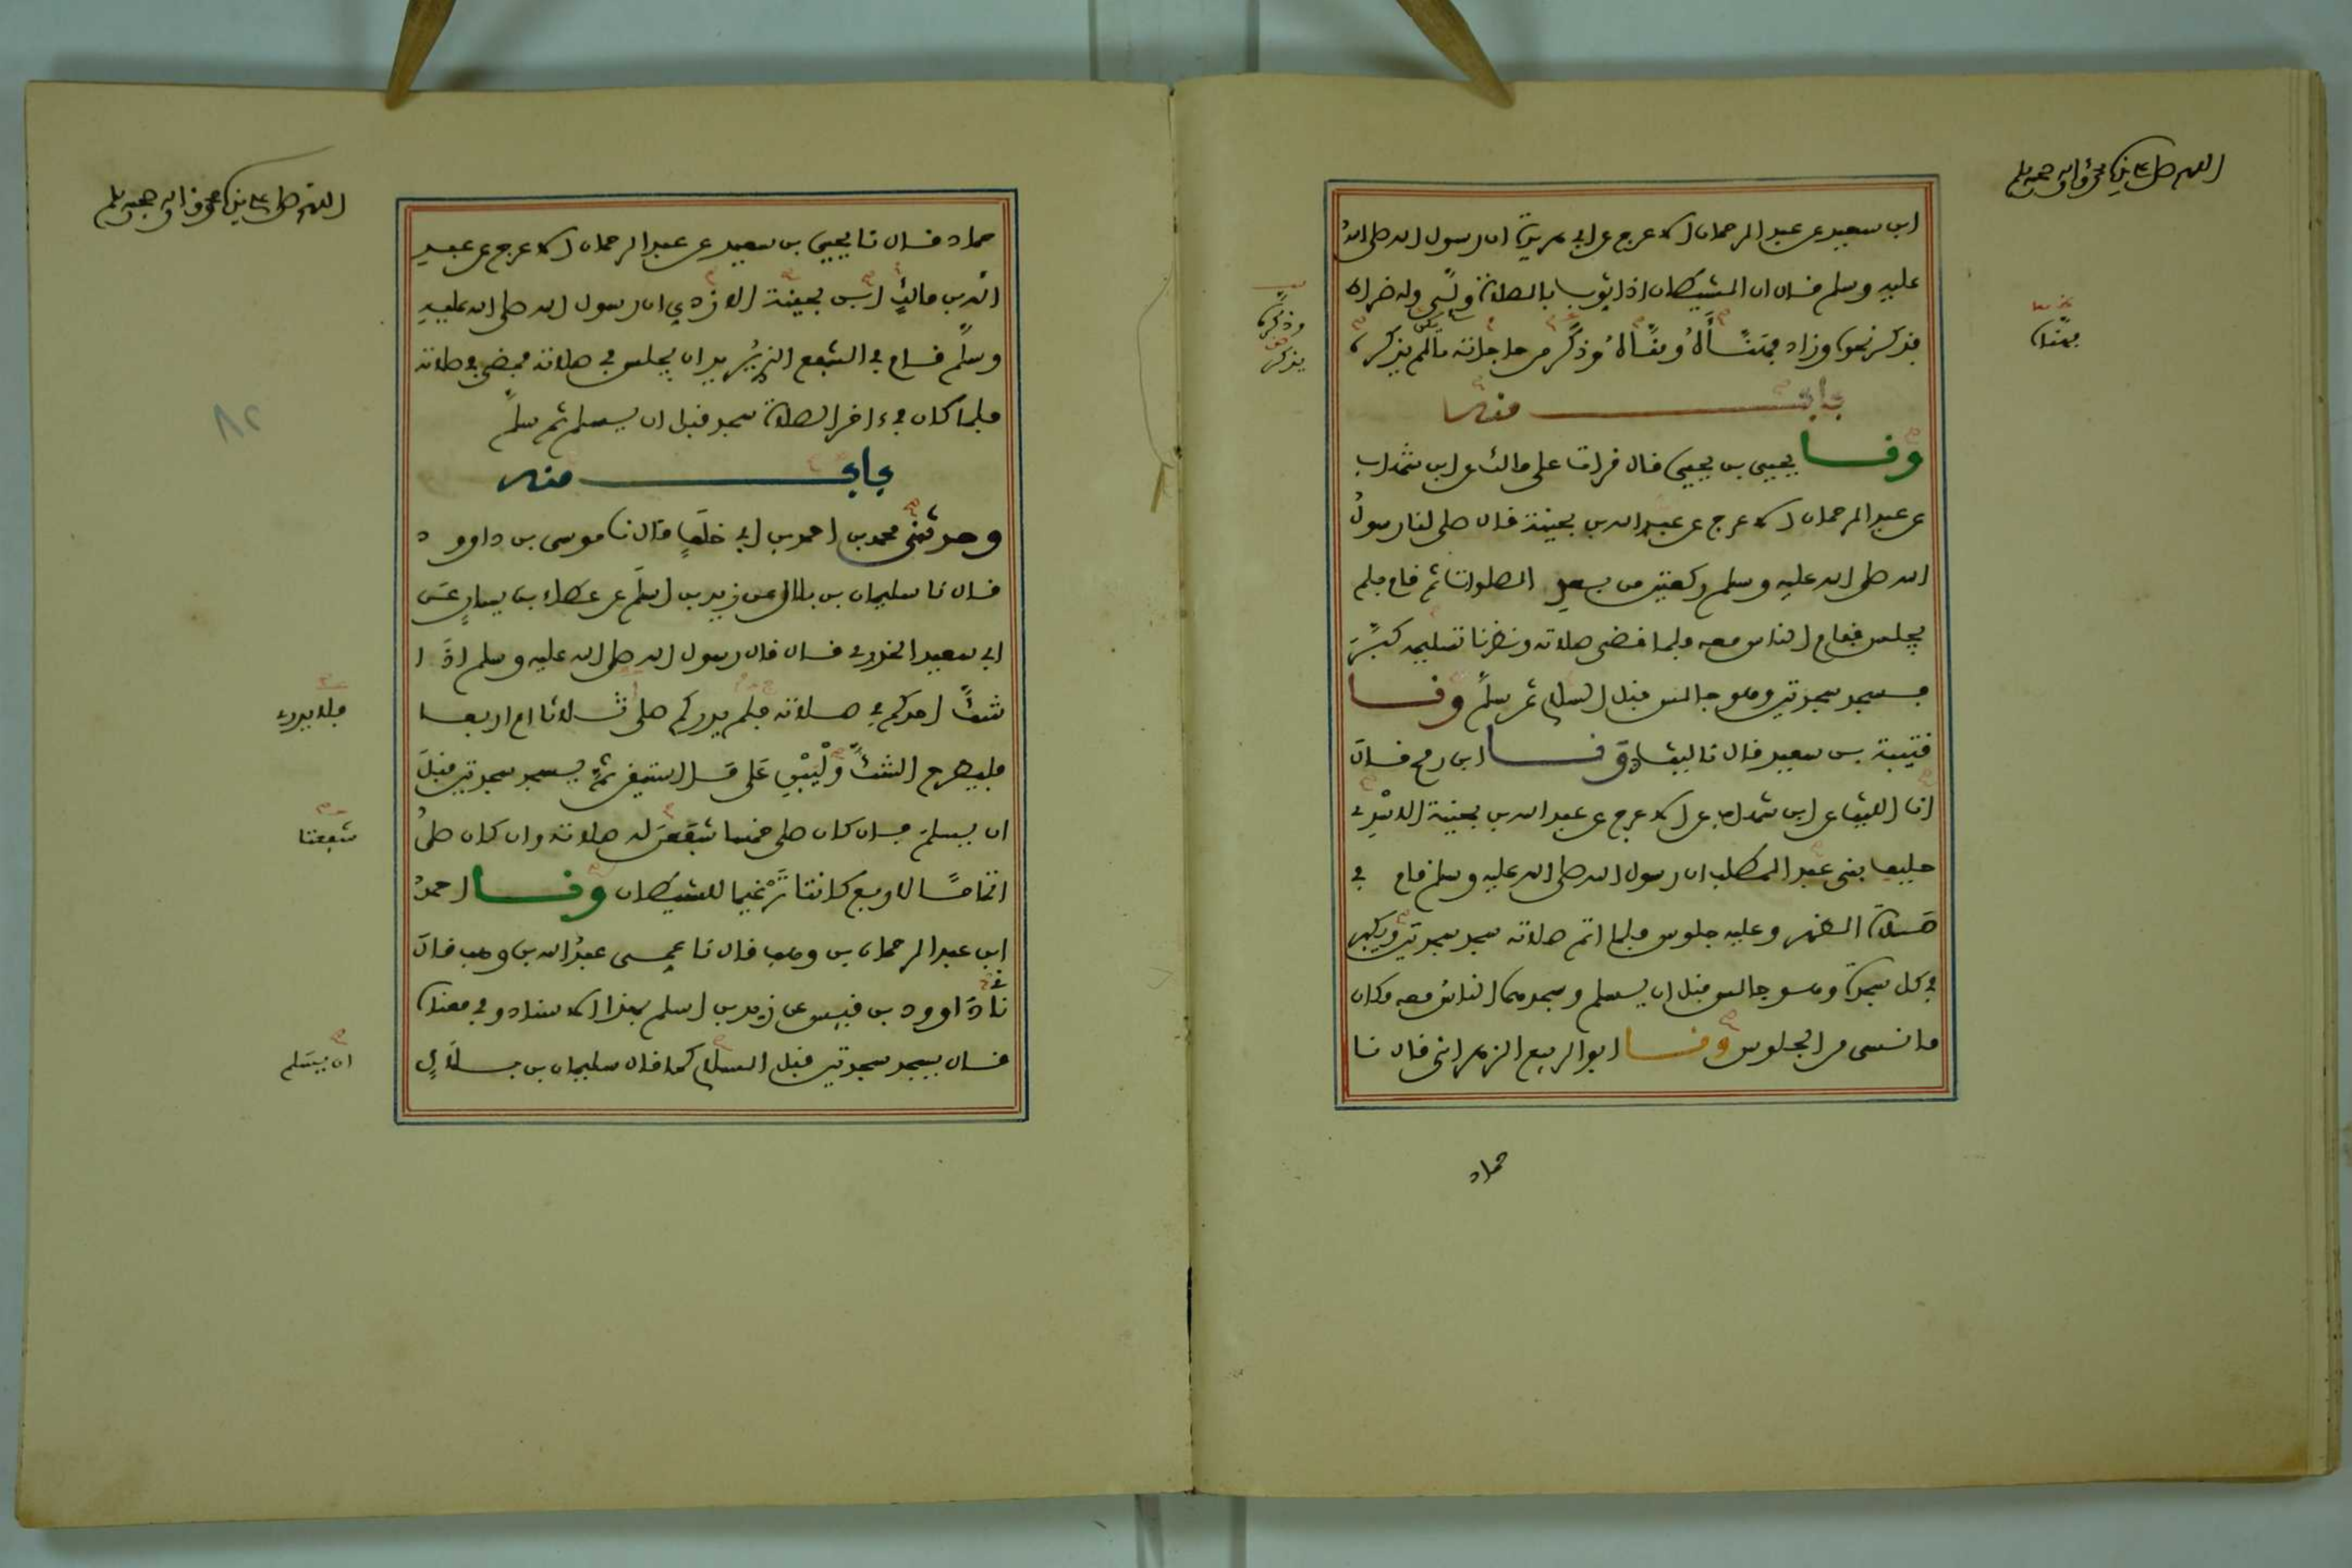 اللهم صل على سيدنا محمد وآله وصحبه وسلم
ابن سعيد عن عبد الرحمان الاعرج عن ابي هريرة ان رسول الله صلى الله
عليه وسلم قال ان الشيطان اذا ثوب بالصلاة ولى وله ضراط
فذكر نحوه وزاد فهناه ومناه وذكره من حاجاته ما لم يكن يذكر
باب منه
ونا يحيى بن يحيى قال قرات على مالك عن ابن شهاب
عن عبد الرحمان الاعرج عن عبد الله بن بحينة قال صلى لنا رسول
الله صلى الله عليه وسلم ركعتين من بعض الصلوات ثم قام فلم
يجلس فقام الناس معه فلما قضى صلاته ونظرنا تسليمه كبر
فسجد سجدتين وهو جالس قبل السلام ثم سلم ونا
قتيبة بن سعيد قال نا ليث ونا ابن رمح قال
انا الليث عن ابن شهاب عن الاعرج عن عبد الله بن بحينة الاسدي
حليف بني عبد المطلب ان رسول الله صلى الله عليه وسلم قام في
صلاة الظهر وعليه جلوس فلما اتم صلاته سجد سجدتين ويكبر
في كل سجدة وهو جالس قبل ان يسلم وسجدهما الناس معه مكان
ما نسي من الجلوس ونا ابو الربيع الزهراني قال نا
حماد
فهناه
وذكره
يذكر
اللهم صل على سيدنا محمد وآله وصحبه وسلم
حماد قال نا يحيى بن سعيد عن عبد الرحمان الاعرج عن عبد
الله بن مالك ابن بحينة الازدي ان رسول الله صلى الله عليه
وسلم قام في الشفع الذي يريد ان يجلس في صلاته فمضى في صلاته
فلما كان في ءاخر الصلاة سجد قبل ان يسلم ثم سلم
باب منه
وحدثني محمد بن احمد بن ابي خلف قال نا موسى بن داوود
قال نا سليمان بن بلال عن زيد بن اسلم عن عطاء بن يسار عن
ابي سعيد الخدري قال قال رسول الله صلى الله عليه وسلم اذا
شك احدكم في صلاته فلم يدر كم صلى ثلاثا ام اربعا
فليطرح الشك وليبن على ما استيقن ثم يسجد سجدتين قبل
ان يسلم فان كان صلى خمسا شفعن له صلاته وان كان صلى
اتماما لاربع كانتا ترغيما للشيطان ونا احمد
ابن عبد الرحمان بن وهب قال نا عمي عبد الله بن وهب قال
نا داوود بن قيس عن زيد بن اسلم بهذا الاسناد وفي معناه
قال يسجد سجدتين قبل السلام كما قال سليمان بن بلال
فلا يدري
شفعتا
ان يسلم
٨٢